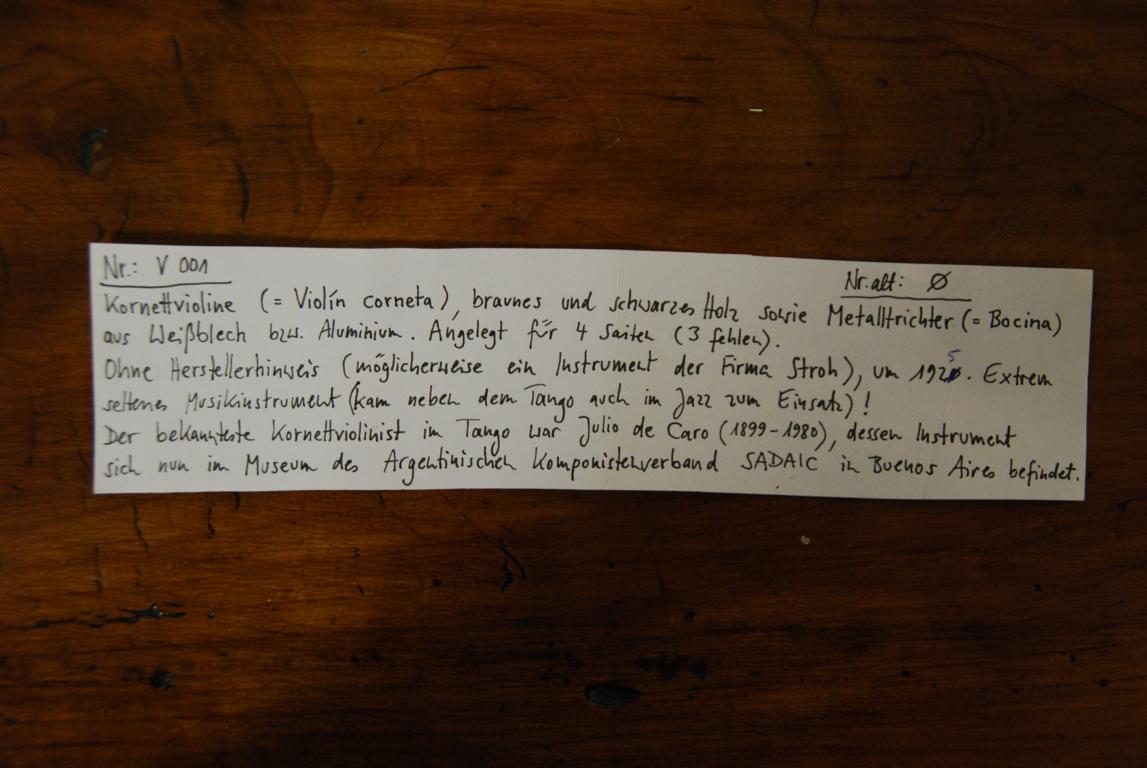 Nr.: V 001
Nr. alt: Ø
Kornettvioline (= Violín corneta), braunes und schwarzes Holz sowie Metalltrichter (= Bocina)
aus Weißblech bzw. Aluminium. Angelegt für 4 Saiten (3 fehlen).
Ohne Herstellerhinweis (möglicherweise ein Instrument der Firma Stroh), um 1925. Extrem
seltenes Musikinstrument (kam neben dem Tango auch im Jazz zum Einsatz)!
Der bekannteste Kornettviolinist im Tango war Julio de Caro (1899-1980), dessen Instrument
sich nun im Museum des Argentinischen Komponistenverband SADAIC in Buenos Aires befindet.